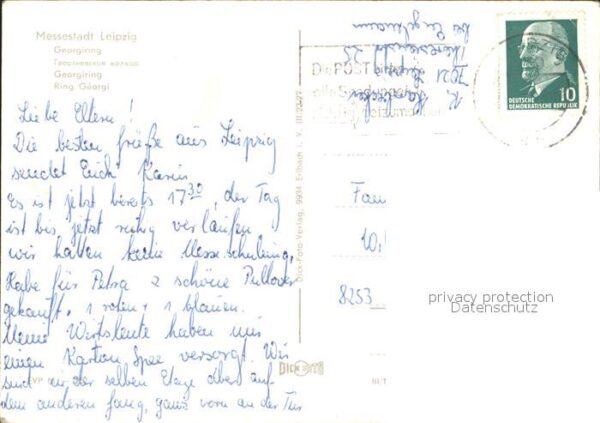 Messestadt Leipzig
Georgiring
Георгиевское кольцо
Georgiring
Ring Géorgi
Liebe Eltern!
Die besten Grüße aus Leipzig
sendet Euch Karin
Es ist jetzt bereits 17³⁰, der Tag
ist bis jetzt ruhig verlaufen
wir hatten keine Messeschulung.
Habe für Petra 2 schöne Pullover
gekauft, 1 roten + 1 blauen.
Meine Wirtsleute haben mir
einen Karton Spee versorgt. Wir
sind in der selben Etage aber auf
dem anderen Gang, ganz vorn an der Tür
VP
DICK FOTO
Dick-Foto-Verlag, 9934 Erlbach i. V.
bei Engelmann
7021 Leipzig
Die POST
alle Sendungen
10
DEUTSCHE
DEMOKRATISCHE REPUBLIK
Fam
10,
8253
privacy protection
Datenschutz